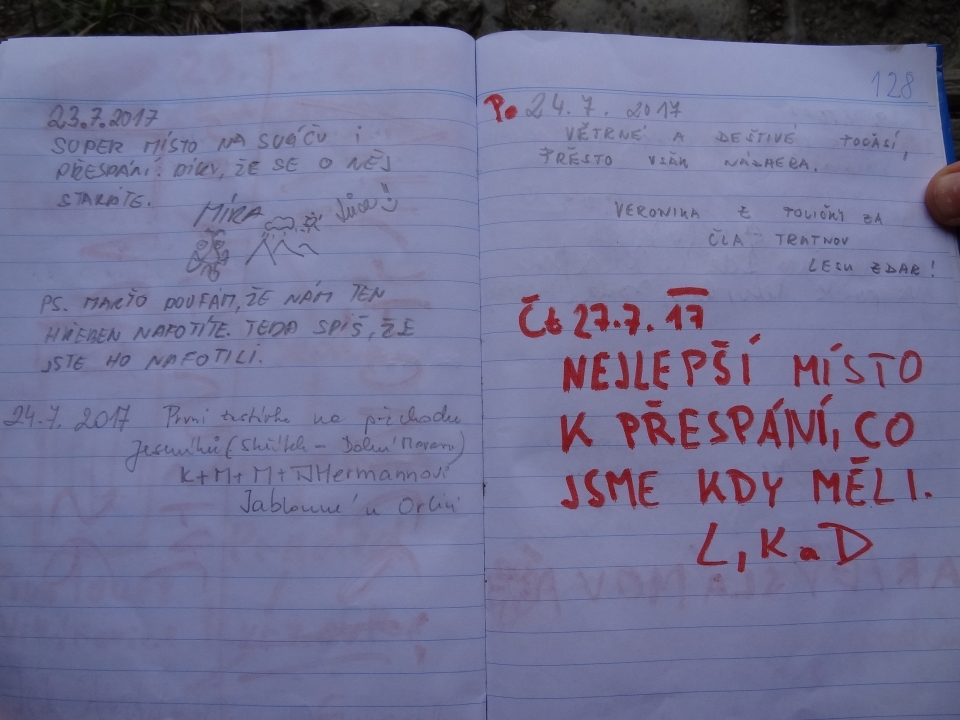 23.7.2017
SUPER MÍSTO NA SVÁČU I
PŘESPÁNÍ. DÍKY, ŽE SE O NĚJ
STARÁTE.
MÍRA
PS. MARŤO DOUFÁM, ŽE NÁM TEN
HŘEBEN NAFOTÍTE. TEDA SPÍŠ, ŽE
JSTE HO NAFOTILI.
24.7. 2017 První zastávka na přechodu
Jeseníků ( - Dolní Morava)
K+M+M+ Hermannovi
Jablonné n Orlicí
128
Po 24.7. 2017
VĚTRNÉ A DEŠTIVÉ POČASÍ,
PŘESTO VŠAK NÁDHERA.
VERONIKA Z POLIČKY ZA
ČLA TRUTNOV
LESU ZDAR!
Čt 27.7. 17
NEJLEPŠÍ MÍSTO
K PŘESPÁNÍ, CO
JSME KDY MĚLI.
L, K a D